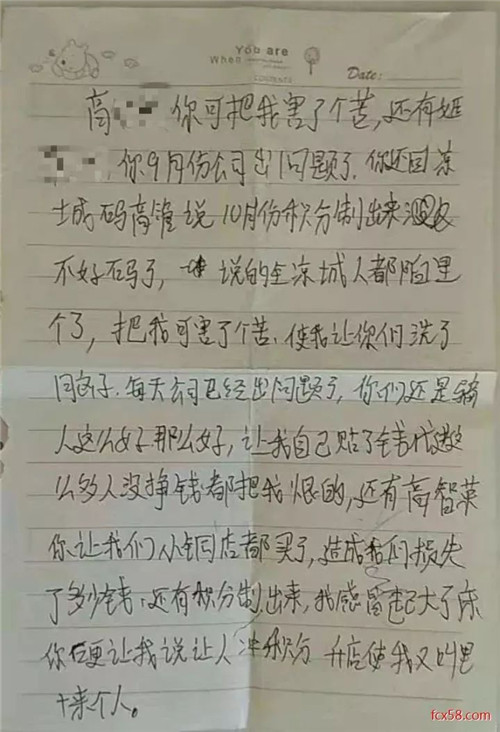 You are
When
Date:
高 你可把我害了个苦，还有姬
你9月份公司出问题了，你还回凉
城码高谁说10月份积分制出来
不好码了，一 说的全凉城人都 里
个了，把我可害了个苦．使我让你们洗了
子．每天公司已经出问题了，你们还是骗
人这么好那么好，让我自己贴了钱 这
么多人没挣钱都把我恨的，还有高智英
你让我们 店都买了，造成我们损失
了多少钱．还有积分制出来，我感冒起 了床
你硬让我说让人冲积分 开店使我又叫里
十来个人。
fcx58.com